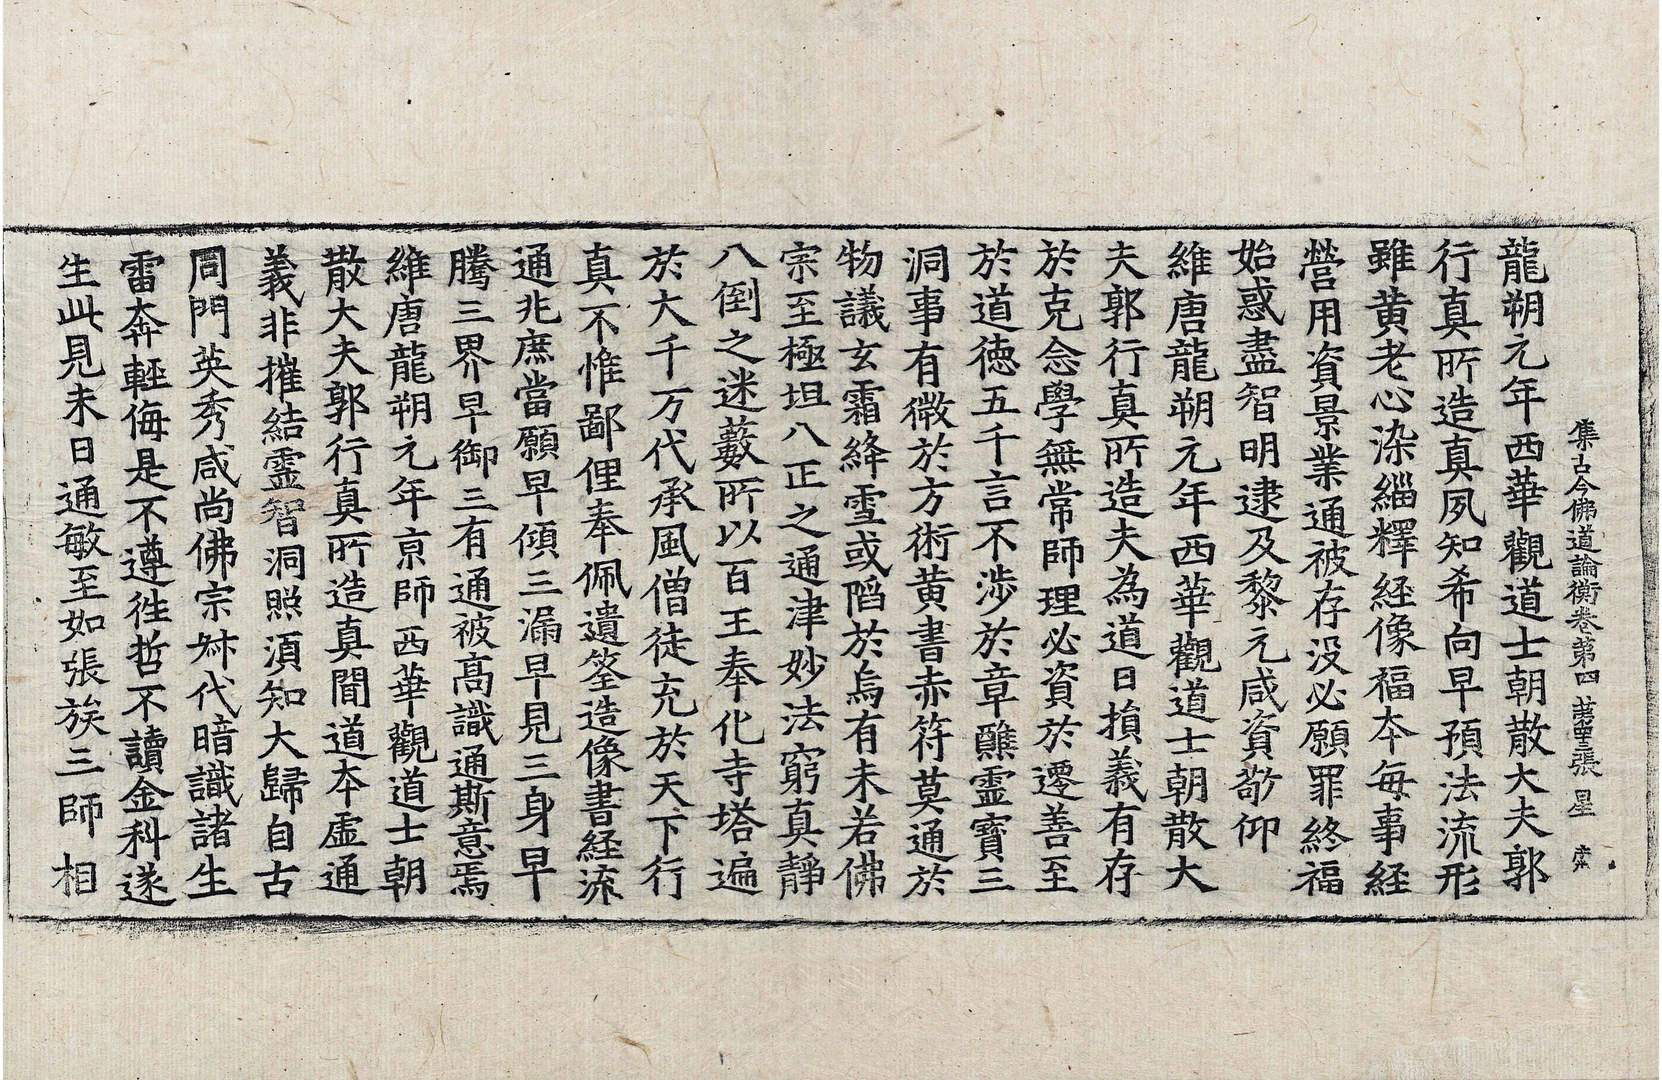 集古今佛道論衡卷第四 第四十張 星
龍朔元年西華觀道士朝散大夫郭
行真所造真夙知希向早預法流形
雖黃老心染緇釋経像福本每事経
營用資景業通被存没必願罪終福
始惑盡智明逮及黎元咸資敬仰
維唐龍朔元年西華觀道士朝散大
夫郭行真所造夫為道日損義有存
於克念學無常師理必資於遷善至
於道德五千言不渉於章醮靈寶三
洞事有微於方術黄書赤符莫通於
物議玄霜絳雪或䧟於烏有未若佛
宗至極坦八正之通津妙法窮真靜
八倒之迷藪所以百王奉化寺塔遍
於大千万代承風僧徒充於天下行
真不惟鄙俚奉佩遺筌造像書経流
通兆庶當願早傾三漏早見三身早
騰三界早御三有通被髙識通斯意焉
維唐龍朔元年京師西華觀道士朝
散大夫郭行真所造真聞道本虛通
義非摧結靈智洞照湏知大歸自古
周門英秀咸尚佛宗叔代暗識諸生
雷奔輕侮是不遵徃哲不讀金科遂
生此見未日通敏至如張族三師相